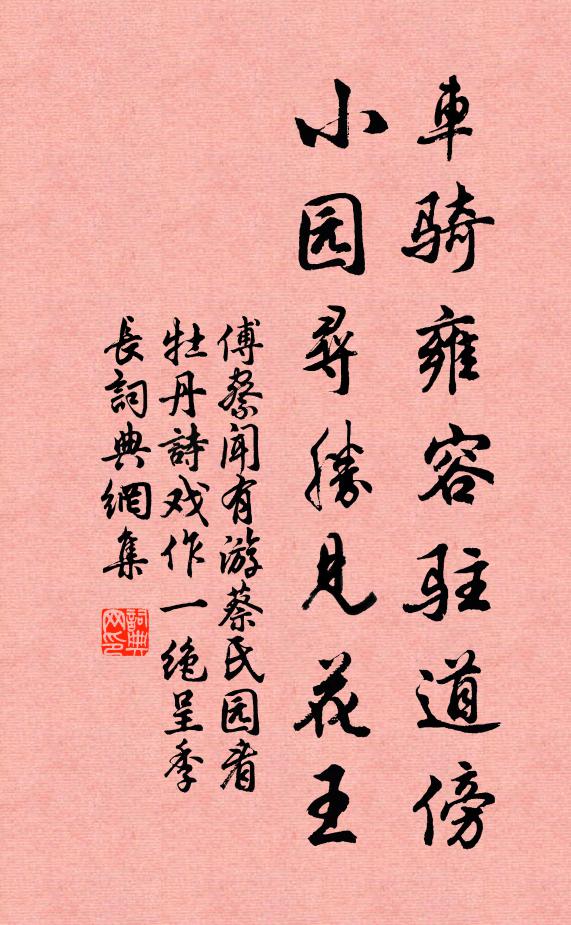 車骑雍容驻道傍
小园尋勝見花王
傅察闻有游蔡氏园看
牡丹詩戏作一绝呈季
長詞典網集
詞典
网印